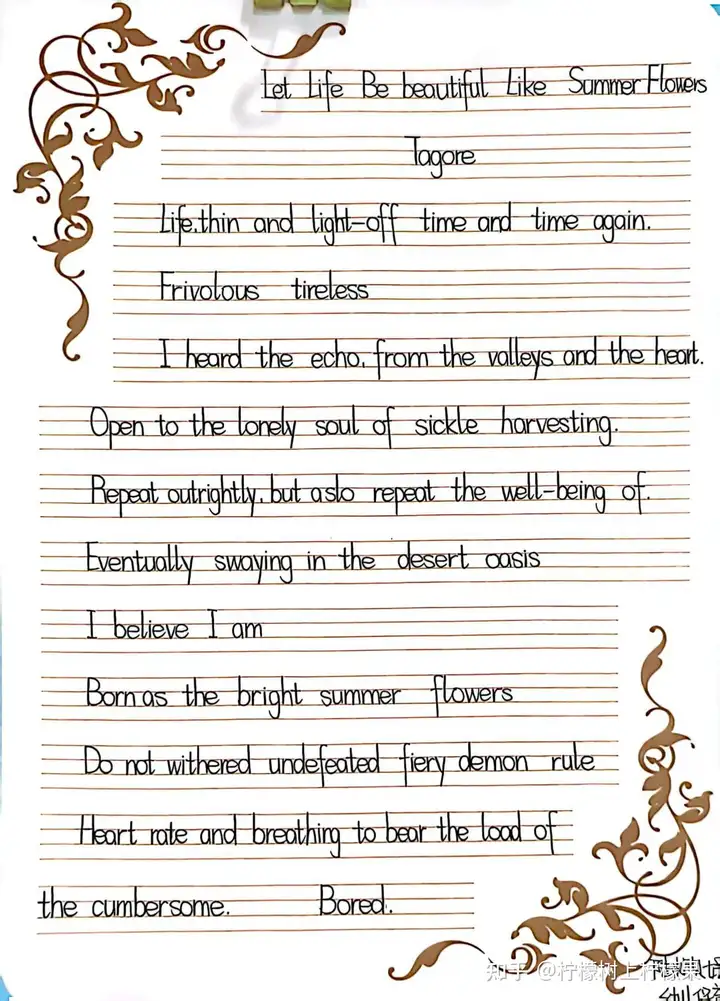 Let Life Be beautiful Like Summer Flowers
Tagore
Life.thin and light-off time and time again.
Frivolous tireless
I heard the echo. from the valleys and the heart.
Open to the lonely soul of sickle harvesting.
Repeat outrightly. but aslo repeat the well-being of.
Eventually swaying in the desert oasis
I believe I am
Born as the bright summer flowers
Do not withered undefeated fiery demon rule
Heart rate and breathing to bear the load of
the cumbersome. Bored.
知乎 @柠檬树上柠檬果